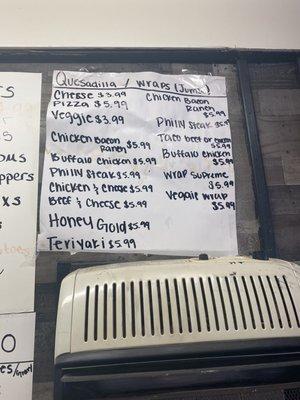 Quesadilla / Wraps (Jumbo)
Cheese $3.99
Pizza $5.99
Veggie $3.99
Chicken Bacon Ranch $5.99
Buffalo Chicken $5.99
Philly Steak $5.99
Chicken & Cheese $5.99
Beef & Cheese $5.99
Honey Gold $5.99
Teriyaki $5.99
Chicken Bacon
Ranch
$5.99
Philly Steak $5.99
Taco Beef or Bacon
$5.99
Buffalo Chicken
$5.99
Wrap Supreme
$5.99
Veggie Wrap
$5.99